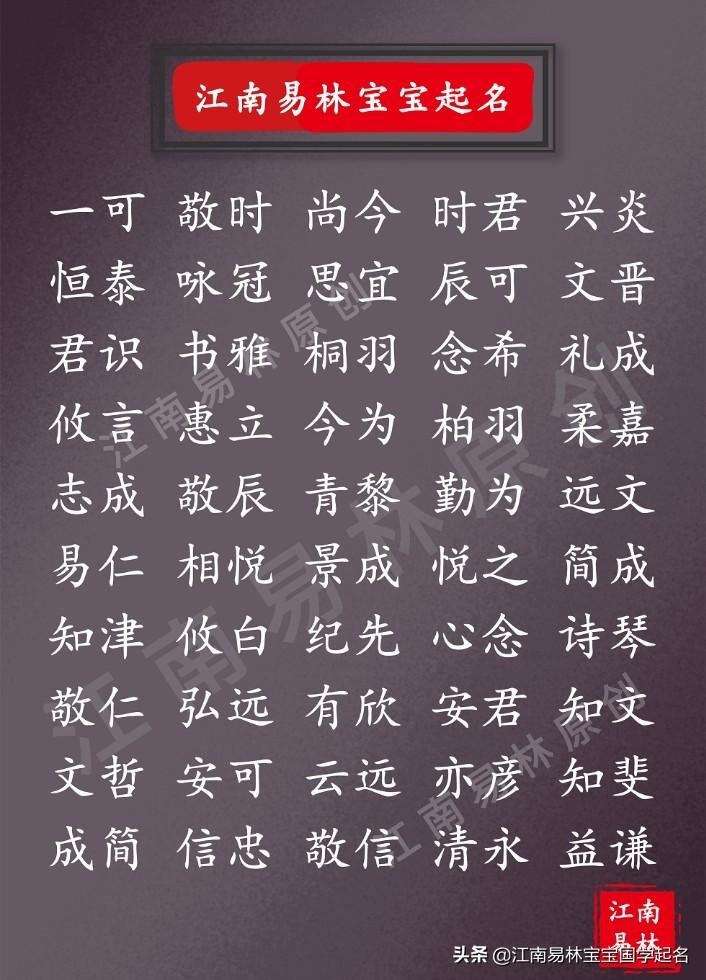 江南易林宝宝起名
一可 敬时 尚今 时君 兴炎
恒泰 咏冠 思宜 辰可 文晋
君识 书雅 桐羽 念希 礼成
攸言 惠立 今为 柏羽 柔嘉
志成 敬辰 青黎 勤为 远文
易仁 相悦 景成 悦之 简成
知津 攸白 纪先 心念 诗琴
敬仁 弘远 有欣 安君 知文
文哲 安可 云远 亦彦 知斐
成简 信忠 敬信 清永 益谦
江南易林原创
江南易林原创
江南易林原创
江南
易林
头条 @江南易林宝宝国学起名